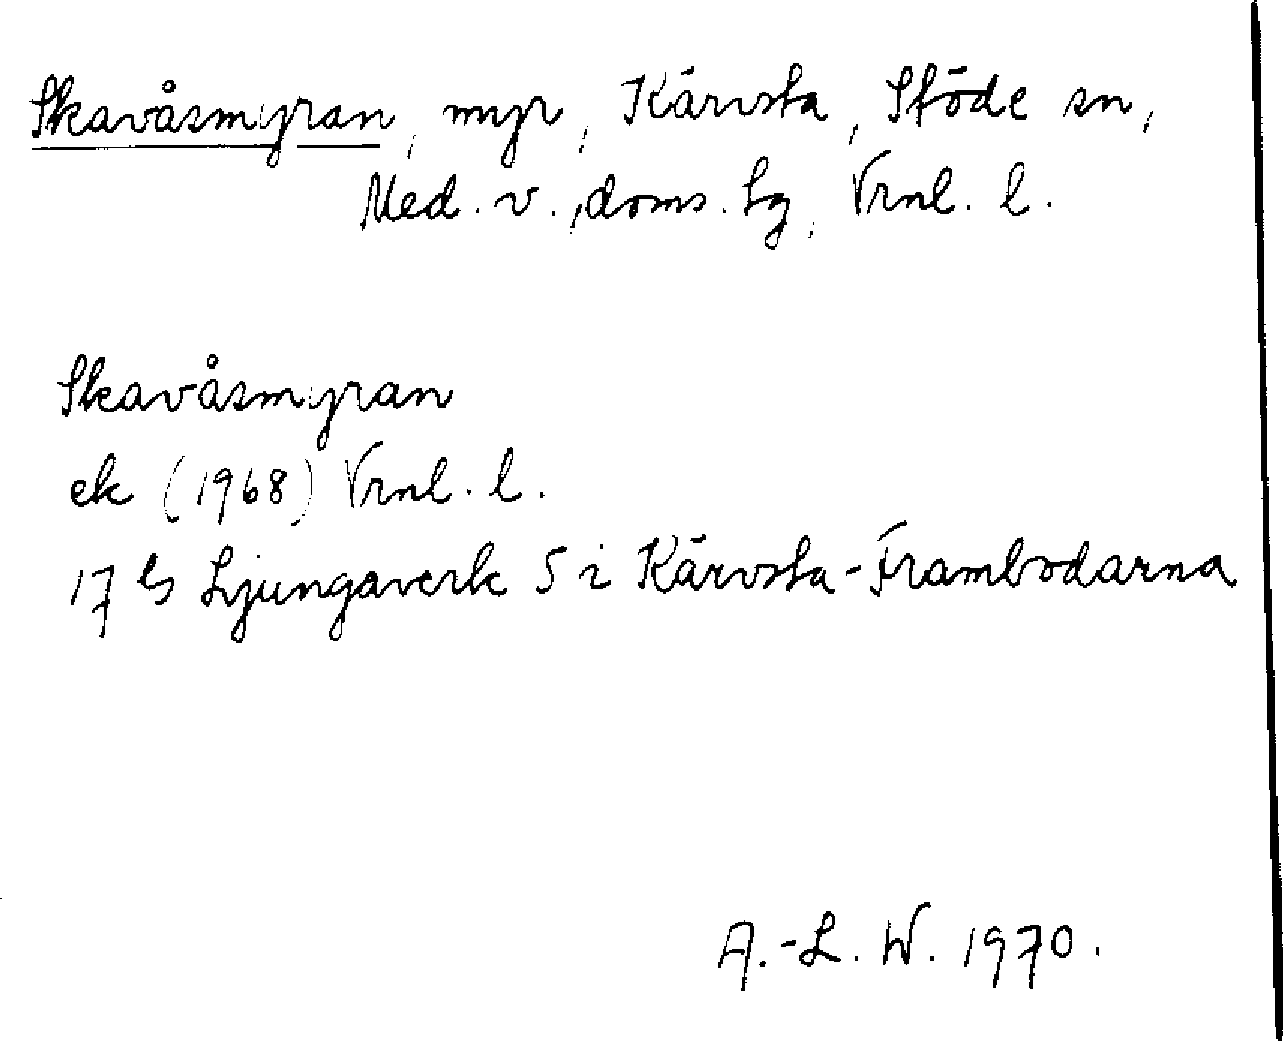 Skavåsmyran, myr, Kärvsta, Stöde sn,
Med. v., doms. hg, Vrnl. l.
Skavåsmyran
ek (1968) Vrnl. l.
17 G Ljungaverk 5 i Kärvsta-Frambodarna
A.-L. W. 1970.